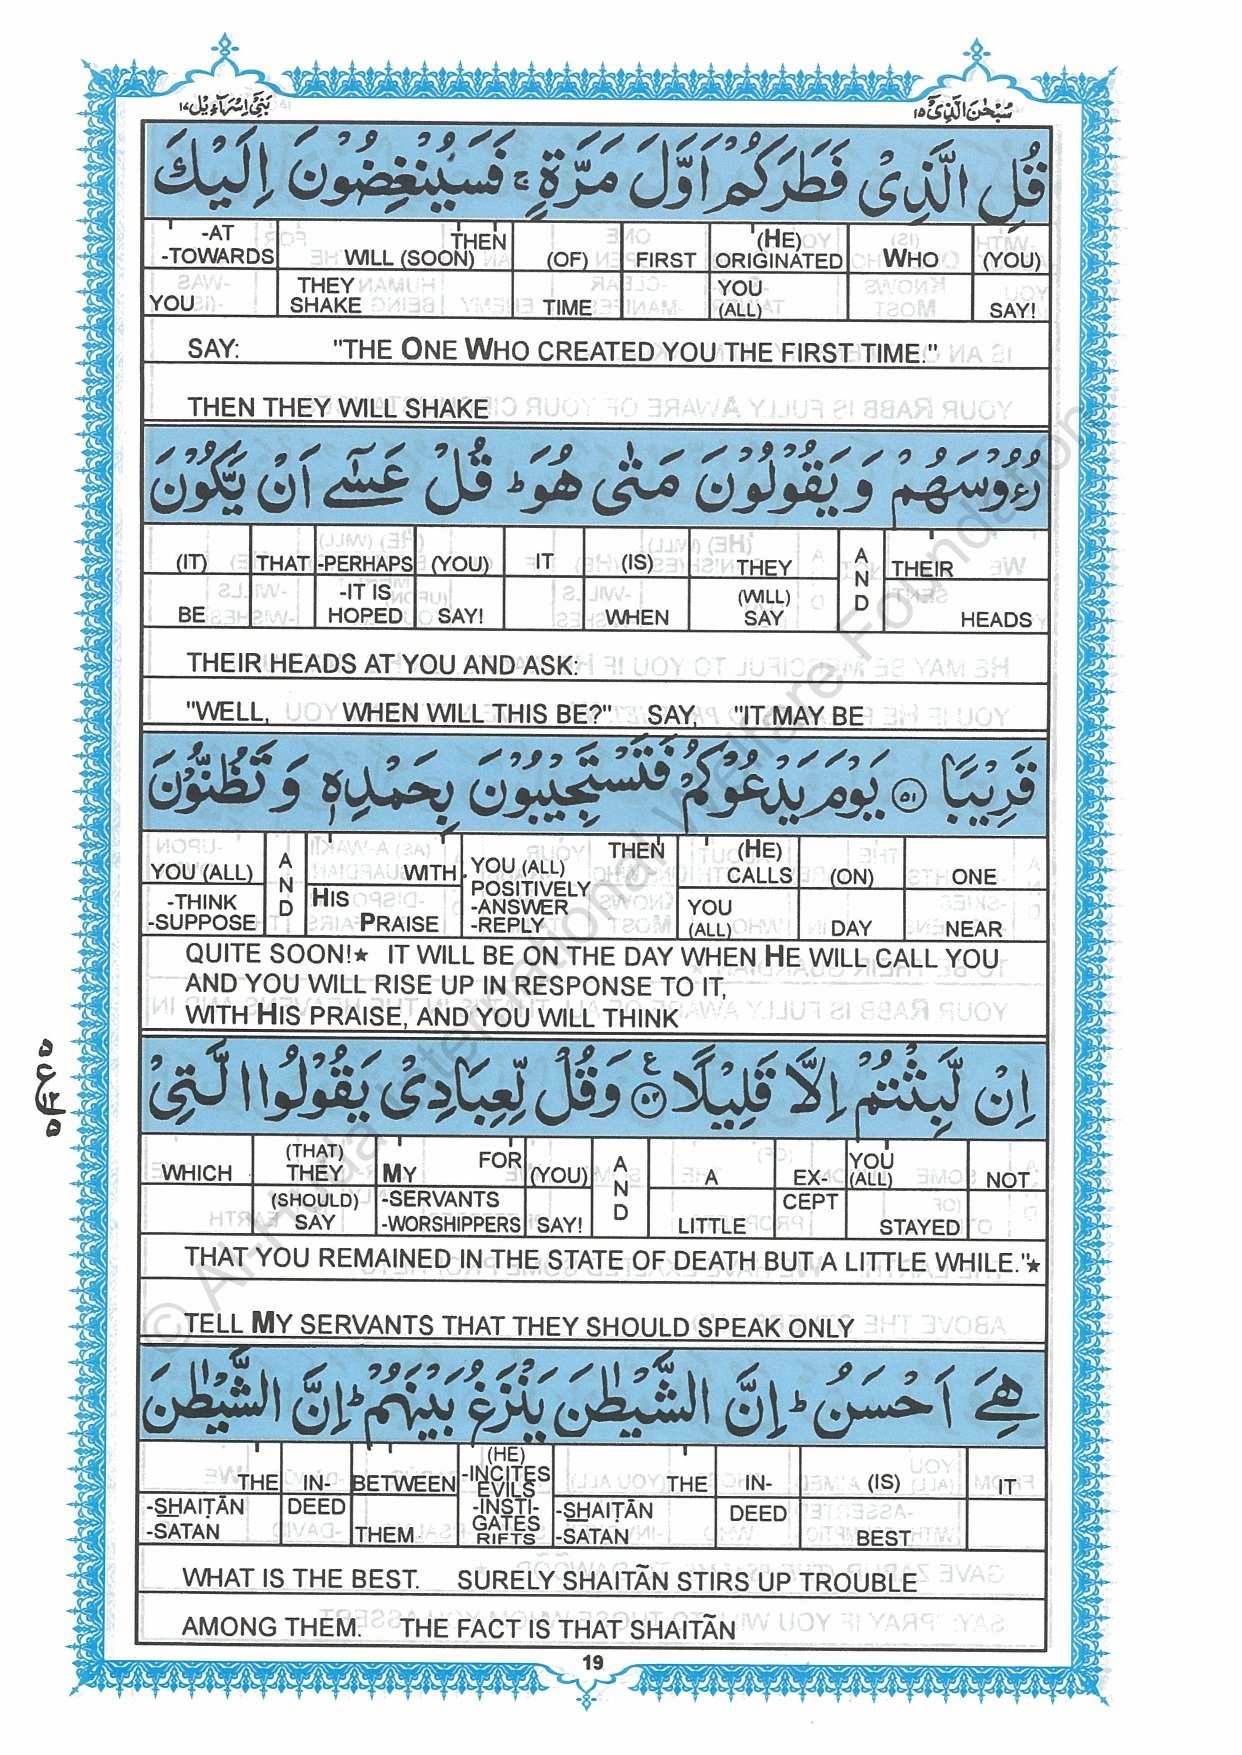 بَنِیْٓ اِسْرَآءِیْل ۱۷ سُبْحٰنَ الَّذِیْٓ ۱۵
قُلِ الَّذِیْ فَطَرَكُمْ اَوَّلَ مَرَّةٍ ۚ فَسَیُنْغِضُوْنَ اِلَیْكَ
-AT -TOWARDS THEN WILL (SOON) (OF) FIRST (HE) ORIGINATED WHO (YOU)
YOU THEY SHAKE TIME YOU (ALL) SAY!
SAY: "THE ONE WHO CREATED YOU THE FIRST TIME."
THEN THEY WILL SHAKE
رُءُوْسَهُمْ وَ یَقُوْلُوْنَ مَتٰی هُوَ ؕ قُلْ عَسٰۤی اَنْ یَّكُوْنَ
(IT) THAT -PERHAPS (YOU) IT (IS) THEY AND THEIR
BE -IT IS HOPED SAY! WHEN (WILL) SAY HEADS
THEIR HEADS AT YOU AND ASK:
"WELL, WHEN WILL THIS BE?" SAY, "IT MAY BE
قَرِیْبًا ۵۱ یَوْمَ یَدْعُوْكُمْ فَتَسْتَجِیْبُوْنَ بِحَمْدِهٖ وَ تَظُنُّوْنَ
YOU (ALL) AND WITH THEN YOU (ALL) (HE) CALLS (ON) ONE
-THINK -SUPPOSE HIS PRAISE POSITIVELY -ANSWER -REPLY YOU (ALL) DAY NEAR
QUITE SOON!★ IT WILL BE ON THE DAY WHEN HE WILL CALL YOU
AND YOU WILL RISE UP IN RESPONSE TO IT,
WITH HIS PRAISE, AND YOU WILL THINK
اِنْ لَّبِثْتُمْ اِلَّا قَلِیْلًا ۵۲ ع وَقُلْ لِّعِبَادِیْ یَقُوْلُوا الَّتِیْ
WHICH (THAT) THEY MY FOR (YOU) AND A EX- YOU (ALL) NOT
(SHOULD) SAY -SERVANTS -WORSHIPPERS SAY! LITTLE CEPT STAYED
THAT YOU REMAINED IN THE STATE OF DEATH BUT A LITTLE WHILE."★
TELL MY SERVANTS THAT THEY SHOULD SPEAK ONLY
هِیَ اَحْسَنُ ؕ اِنَّ الشَّیْطٰنَ یَنْزَغُ بَیْنَهُمْ ؕ اِنَّ الشَّیْطٰنَ
THE IN- BETWEEN (HE) -INCITES EVILS THE IN- (IS) IT
-SHAIṬĀN -SATAN DEED THEM -INSTI- GATES RIFTS -SHAIṬĀN -SATAN DEED BEST
WHAT IS THE BEST. SURELY SHAITÃN STIRS UP TROUBLE
AMONG THEM. THE FACT IS THAT SHAITÃN
19
© Al-Huda International Welfare Foundation